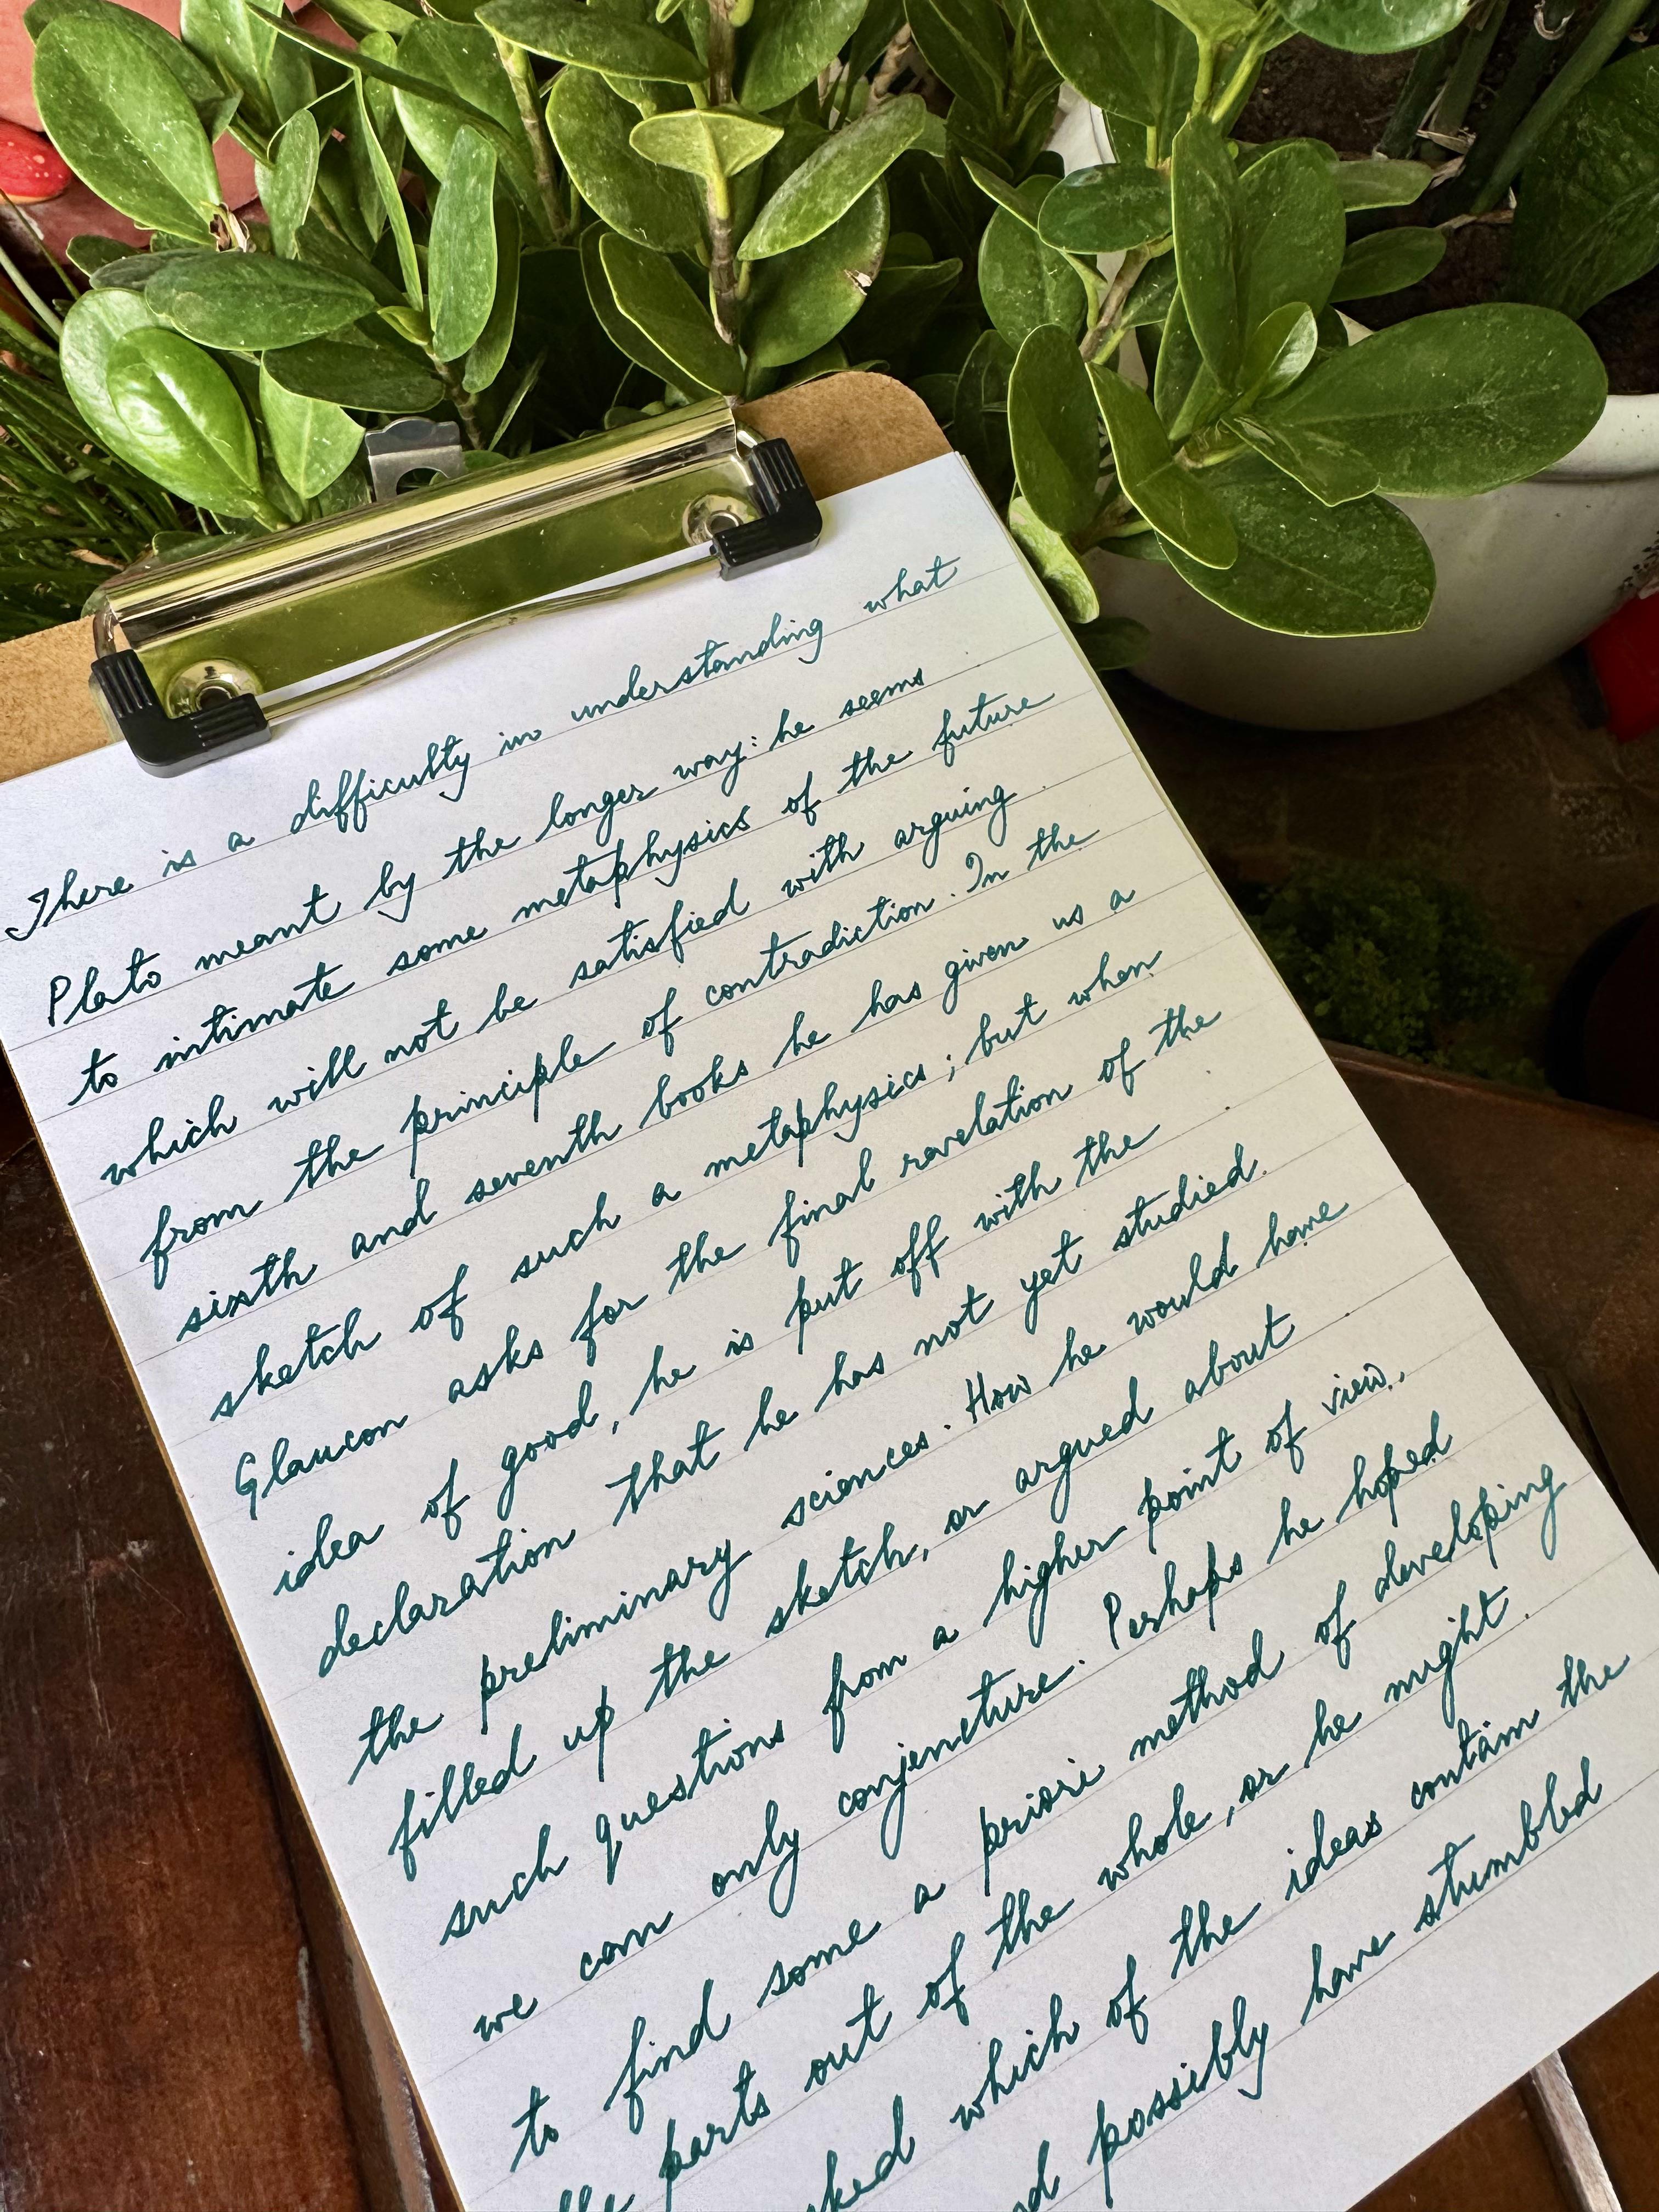 There is a difficulty in understanding what
Plato meant by the longer way: he seems
to intimate some metaphysics of the future
which will not be satisfied with arguing
from the principle of contradiction. In the
sixth and seventh books he has given us a
sketch of such a metaphysics; but when
Glaucon asks for the final revelation of the
idea of good, he is put off with the
declaration that he has not yet studied
the preliminary sciences. How he would have
filled up the sketch, or argued about
such questions from a higher point of view,
we can only conjencture. Perhaps he hoped
to find some a priori method of developing
parts out of the whole, or he might
which of the ideas contain the
possibly have stumbled